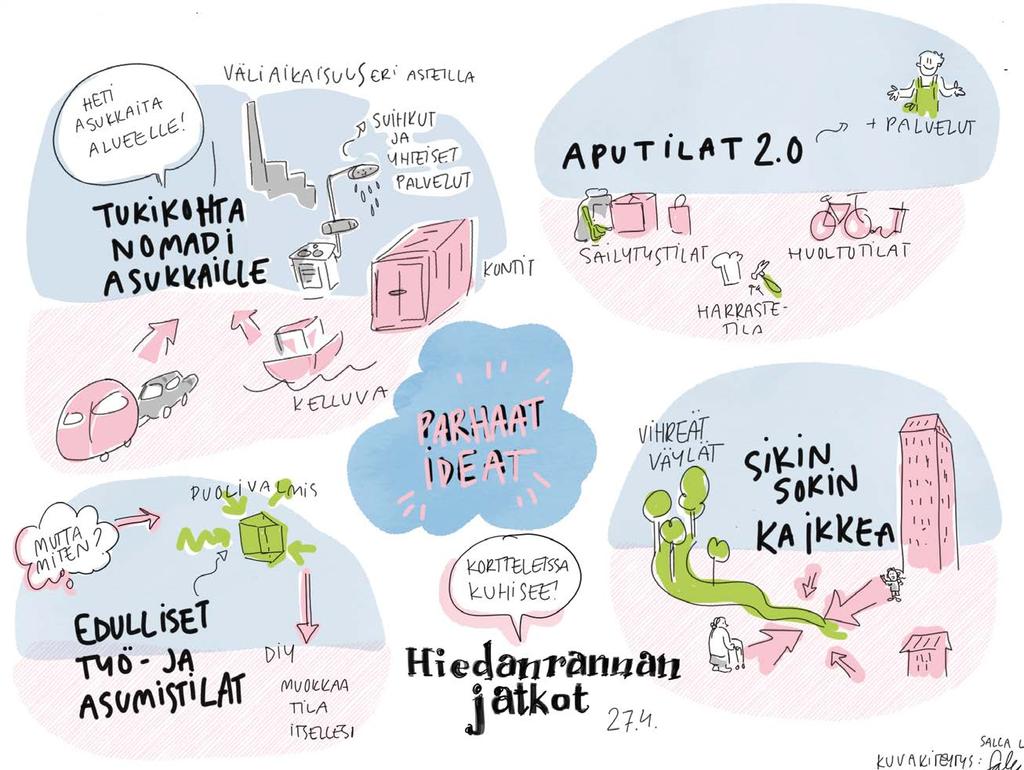 VÄLIAIKAISUUS ERI ASTEILLA
HETI
ASUKKAITA
ALUEELLE!
SUIHKUT
JA
YHTEISET
PALVELUT
TUKIKOHTA
NOMADI
ASUKKAILLE
KONTIT
KELLUVA
APUTILAT 2.0
+ PALVELUT
SÄILYTYSTILAT
HUOLTOTILAT
HARRASTE-
TILA
PARHAAT
IDEAT
VIHREÄT
VÄYLÄT
SIKIN
SOKIN
KAIKKEA
MUTTA
MITEN?
PUOLIVALMIS
EDULLISET
TYÖ- JA
ASUMISTILAT
DIY
MUOKKAA
TILA
ITSELLESI
KORTTELEISSA
KUHISEE!
Hiedanrannan
jatkot
27.4.
SALLA L
KUVAKITEYTYS: